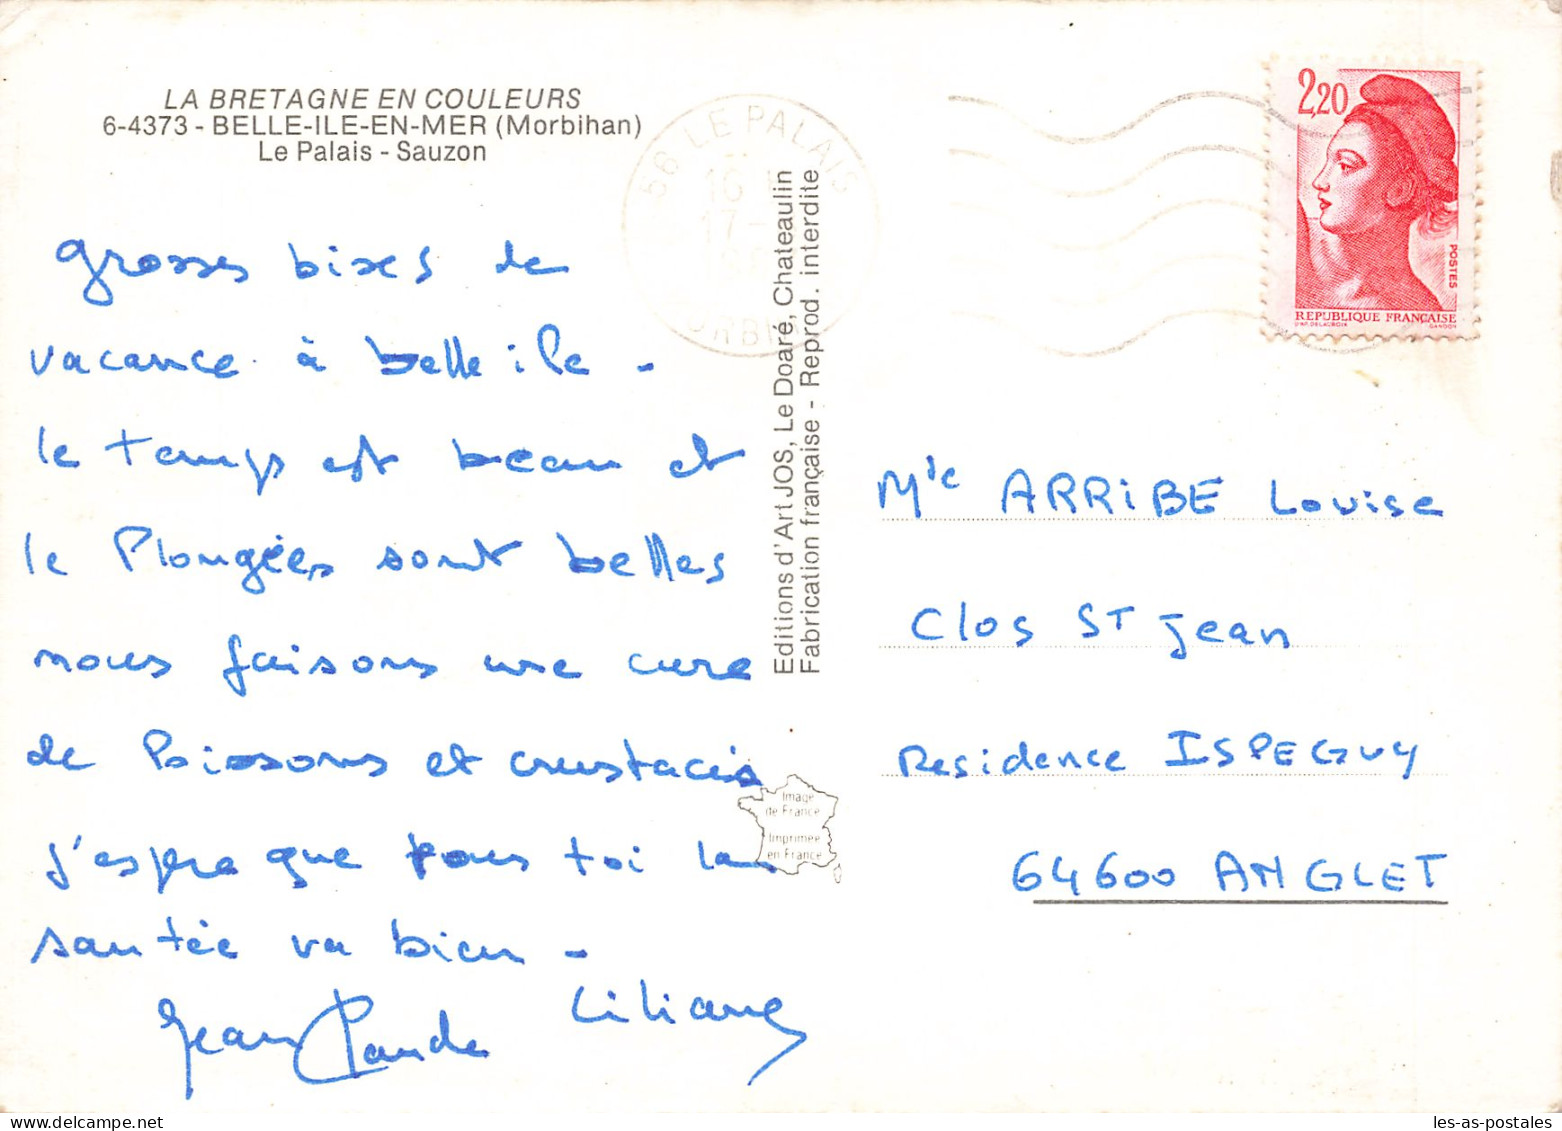 LA BRETAGNE EN COULEURS
6-4373 - BELLE-ILE-EN-MER (Morbihan)
Le Palais - Sauzon
grosses bixes de
vacance à belle ile -
le temps est beau et
le Plongées sont belles
nous faisons une cure
de Poissons et crustacés
j'espre que pour toi la
santée va bien -
Jean Claude Liliane
Editions d'Art JOS, Le Doaré, Chateaulin
Fabrication française - Reprod. interdite
Image
de France
Imprimée
en France
56 LE PALAIS
2,20
POSTES
REPUBLIQUE FRANÇAISE
D'AP. DELACROIX GANDON
Mle ARRiBE Louise
Clos ST Jean
Residence ISPEGUY
64600 ANGLET
les-as-postales